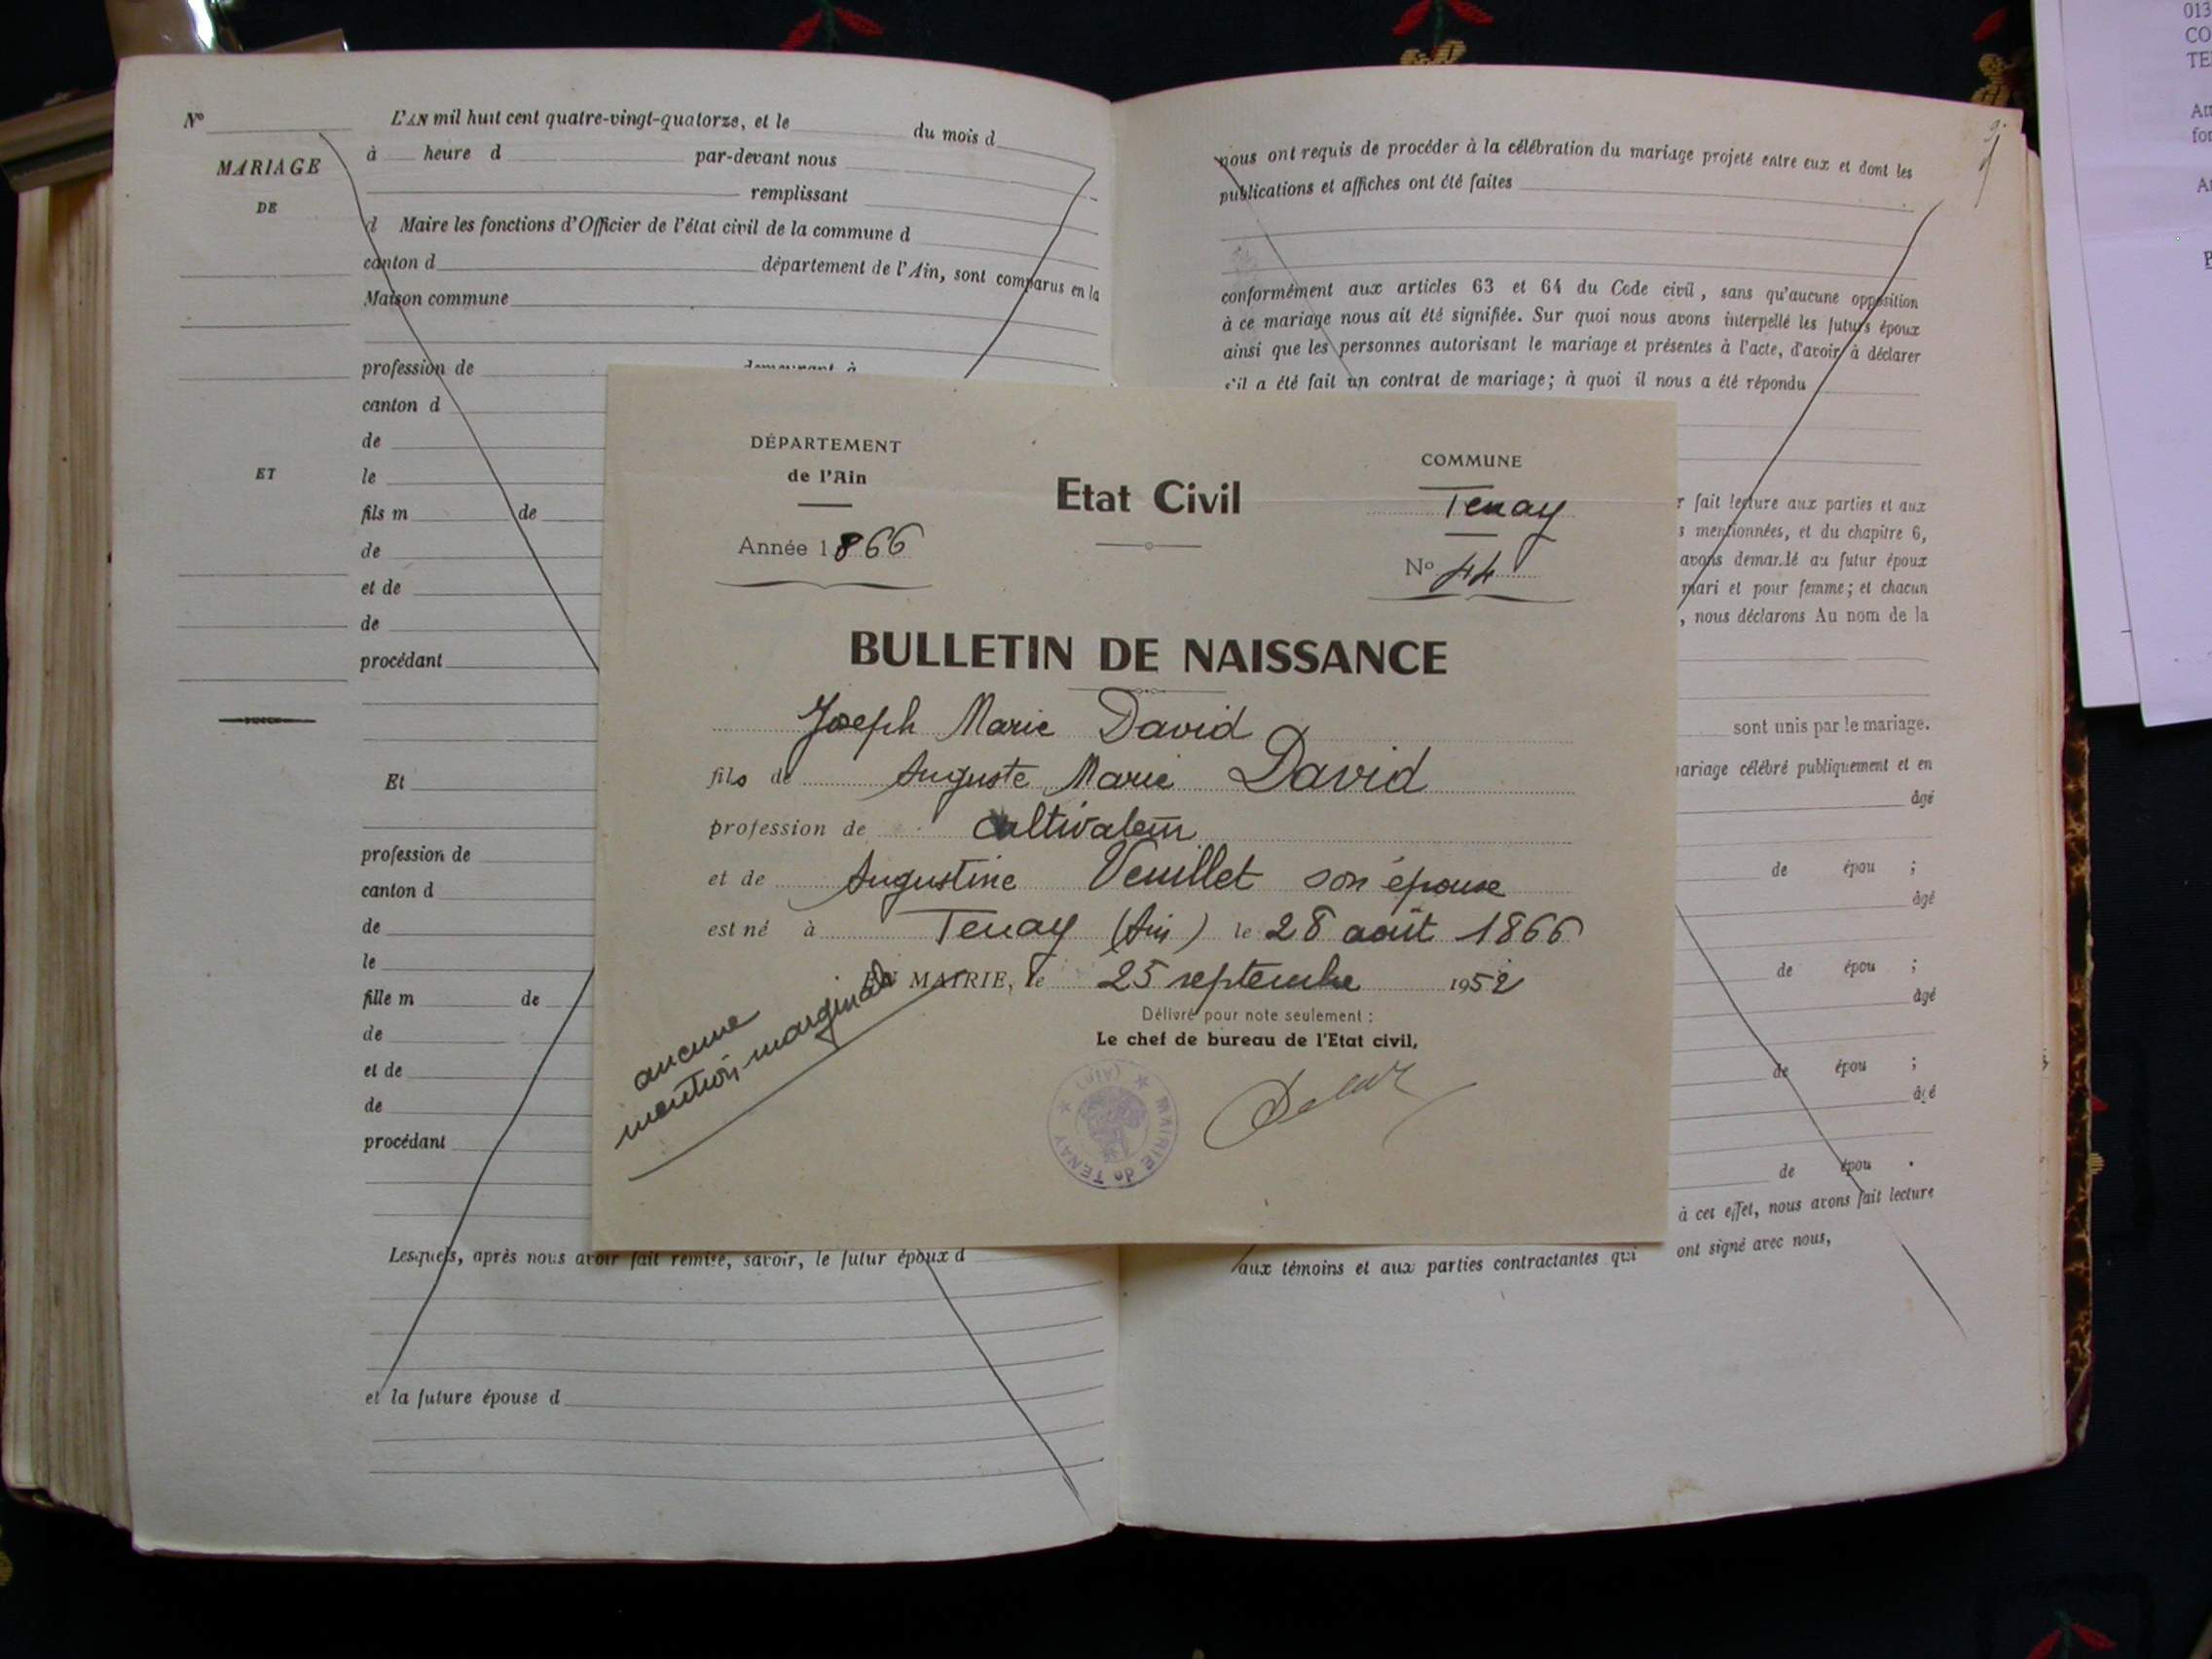 N°
MARIAGE
DE
ET
L'AN mil huit cent quatre-vingt-quatorze, et le du mois d
à heure d par-devant nous
remplissant
d Maire les fonctions d'Officier de l'état civil de la commune d
canton d département de l'Ain, sont comparus en la
Maison commune
profession de demeurant à
canton d
de
le
fils m de
de
et de
de
procédant
Et
profession de
canton d
de
le
fille m de
de
et de
de
procédant
Lesquels, après nous avoir fait remise, savoir, le futur époux d
et la future épouse d
DÉPARTEMENT
de l'Ain
Année 1866
Etat Civil
COMMUNE
Tenay
N° 44
BULLETIN DE NAISSANCE
Joseph Marie David
fils de Auguste Marie David
profession de cultivateur
et de Augustine Veuillet son épouse
est né à Tenay (Ain) le 28 août 1866
EN MAIRIE, le 25 septembre 1952
Délivré pour note seulement :
Le chef de bureau de l'Etat civil,
aucune
mention marginale
MAIRIE de TENAY (Ain)
nous ont requis de procéder à la célébration du mariage projeté entre eux et dont les
publications et affiches ont été faites
conformément aux articles 63 et 64 du Code civil, sans qu'aucune opposition
à ce mariage nous ait été signifiée. Sur quoi nous avons interpellé les futurs époux
ainsi que les personnes autorisant le mariage et présentes à l'acte, d'avoir à déclarer
s'il a été fait un contrat de mariage; à quoi il nous a été répondu
r fait lecture aux parties et aux
s mentionnées, et du chapitre 6,
avons demandé au futur époux
mari et pour femme; et chacun
, nous déclarons Au nom de la
sont unis par le mariage.
ariage célébré publiquement et en
âgé
de épou ;
âgé
de épou ;
âgé
de épou ;
âgé
de épou .
à cet effet, nous avons fait lecture
aux témoins et aux parties contractantes qui ont signé avec nous,
013
CO
TE